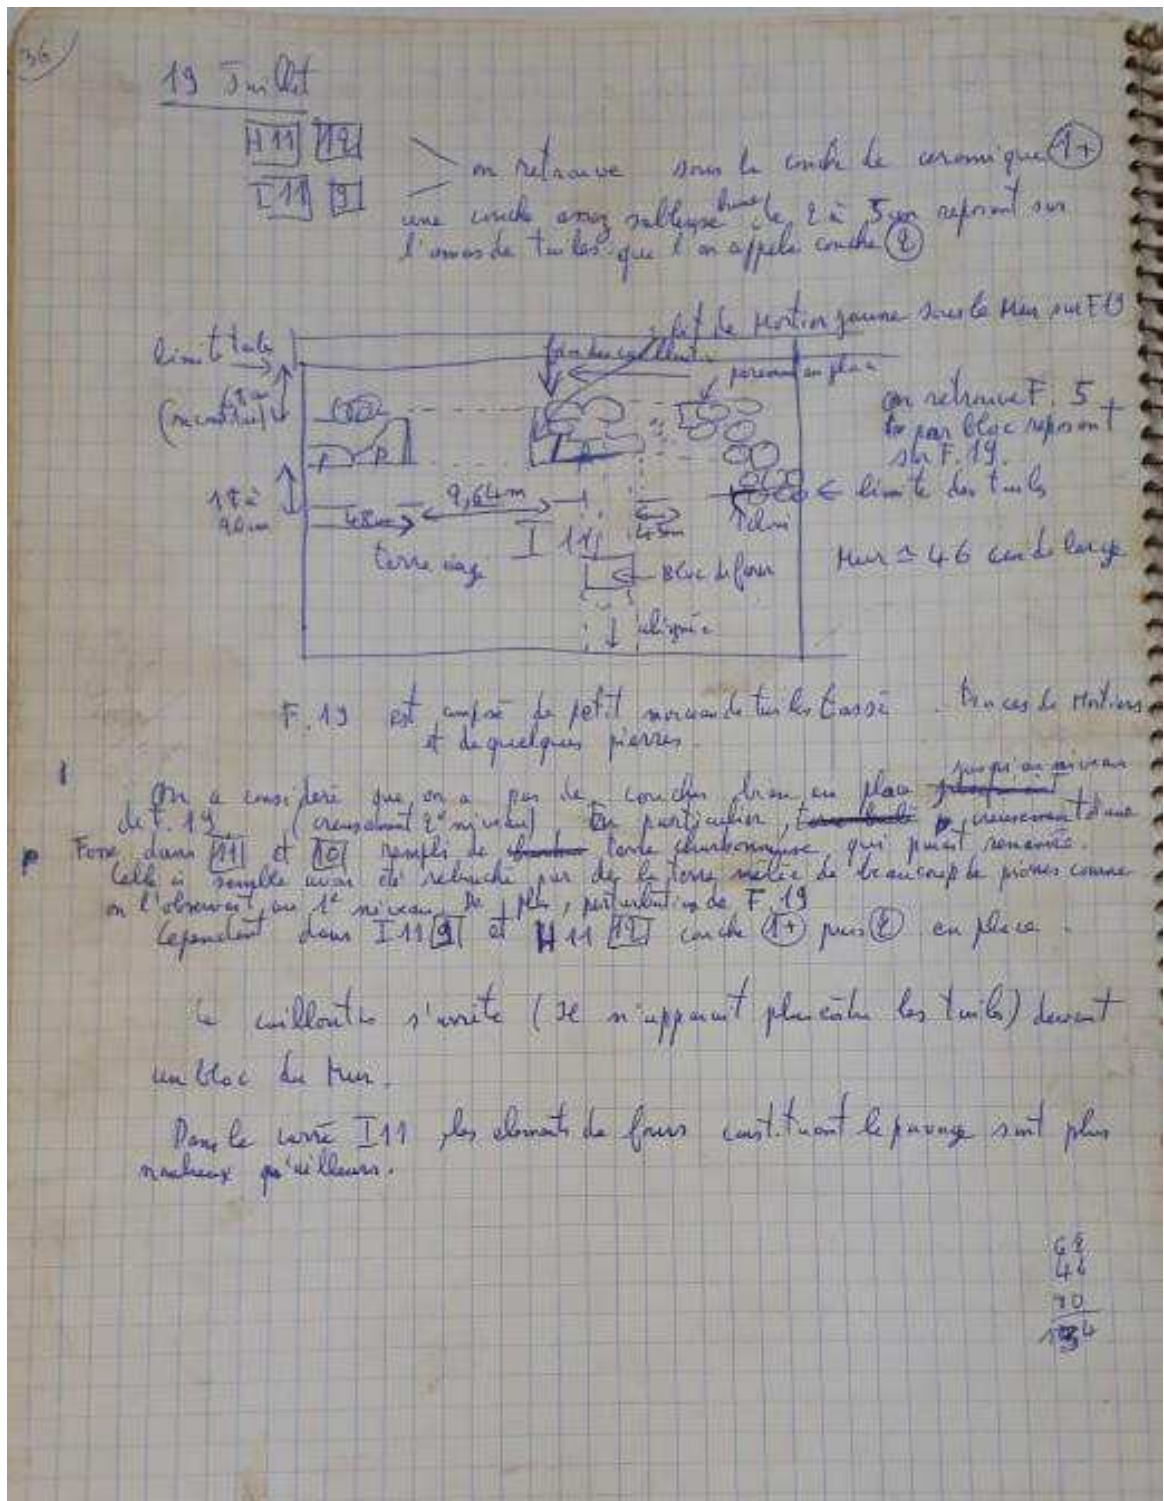 36
19 Juillet
H11 12
I11 9
on retrouve sous la couche de ceramique 1+
une couche assez sableuse brune de 2 à 5 cm reposant sur
l'amas de tuiles que l'on appele couche 2
lit de Mortier jaune sous le Mur sur F19
limite
parement en place
(reconstruit)
on retrouve F. 5
par bloc reposant
sur F. 19.
limite des tuiles
18 à
20 cm
48
9,64m
I 11
Bloc de four
Mur ≃ 46 cm de large
F. 19 est composé de petit morceau de tuiles tassé. traces de Mortiers
et de quelques pierres.
On a considéré que on a pas de couches bien en place jusqu'au niveau
de F. 19 (creusement 2e niveau). En particulier, creusement d'une
Fosse dans 11 et 10 rempli de terre charbonneuse qui parait remaniée.
Celle ci semble avoir été rebouché par de la terre mêlée de beaucoup de pierres comme
on l'observait au 1e niveau. De plus, perturbation de F. 19
Cependant dans I-11 9 et H11 12 couche 1+ puis 2 en place.
Le cailloutis s'arrête (Il n'apparait plus entre les tuiles) devant
un bloc du Mur.
Dans le carré I11, les elements de fours constituant le pavage sont plus
nombreux qu'ailleurs.
68
46